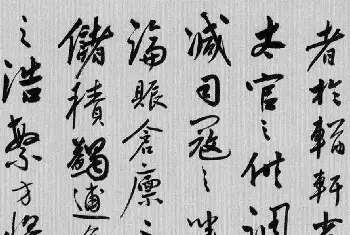 者於輶軒
太官之供調
減司寇之
論賑倉廩之
儲積蠲逋
之浩繁方